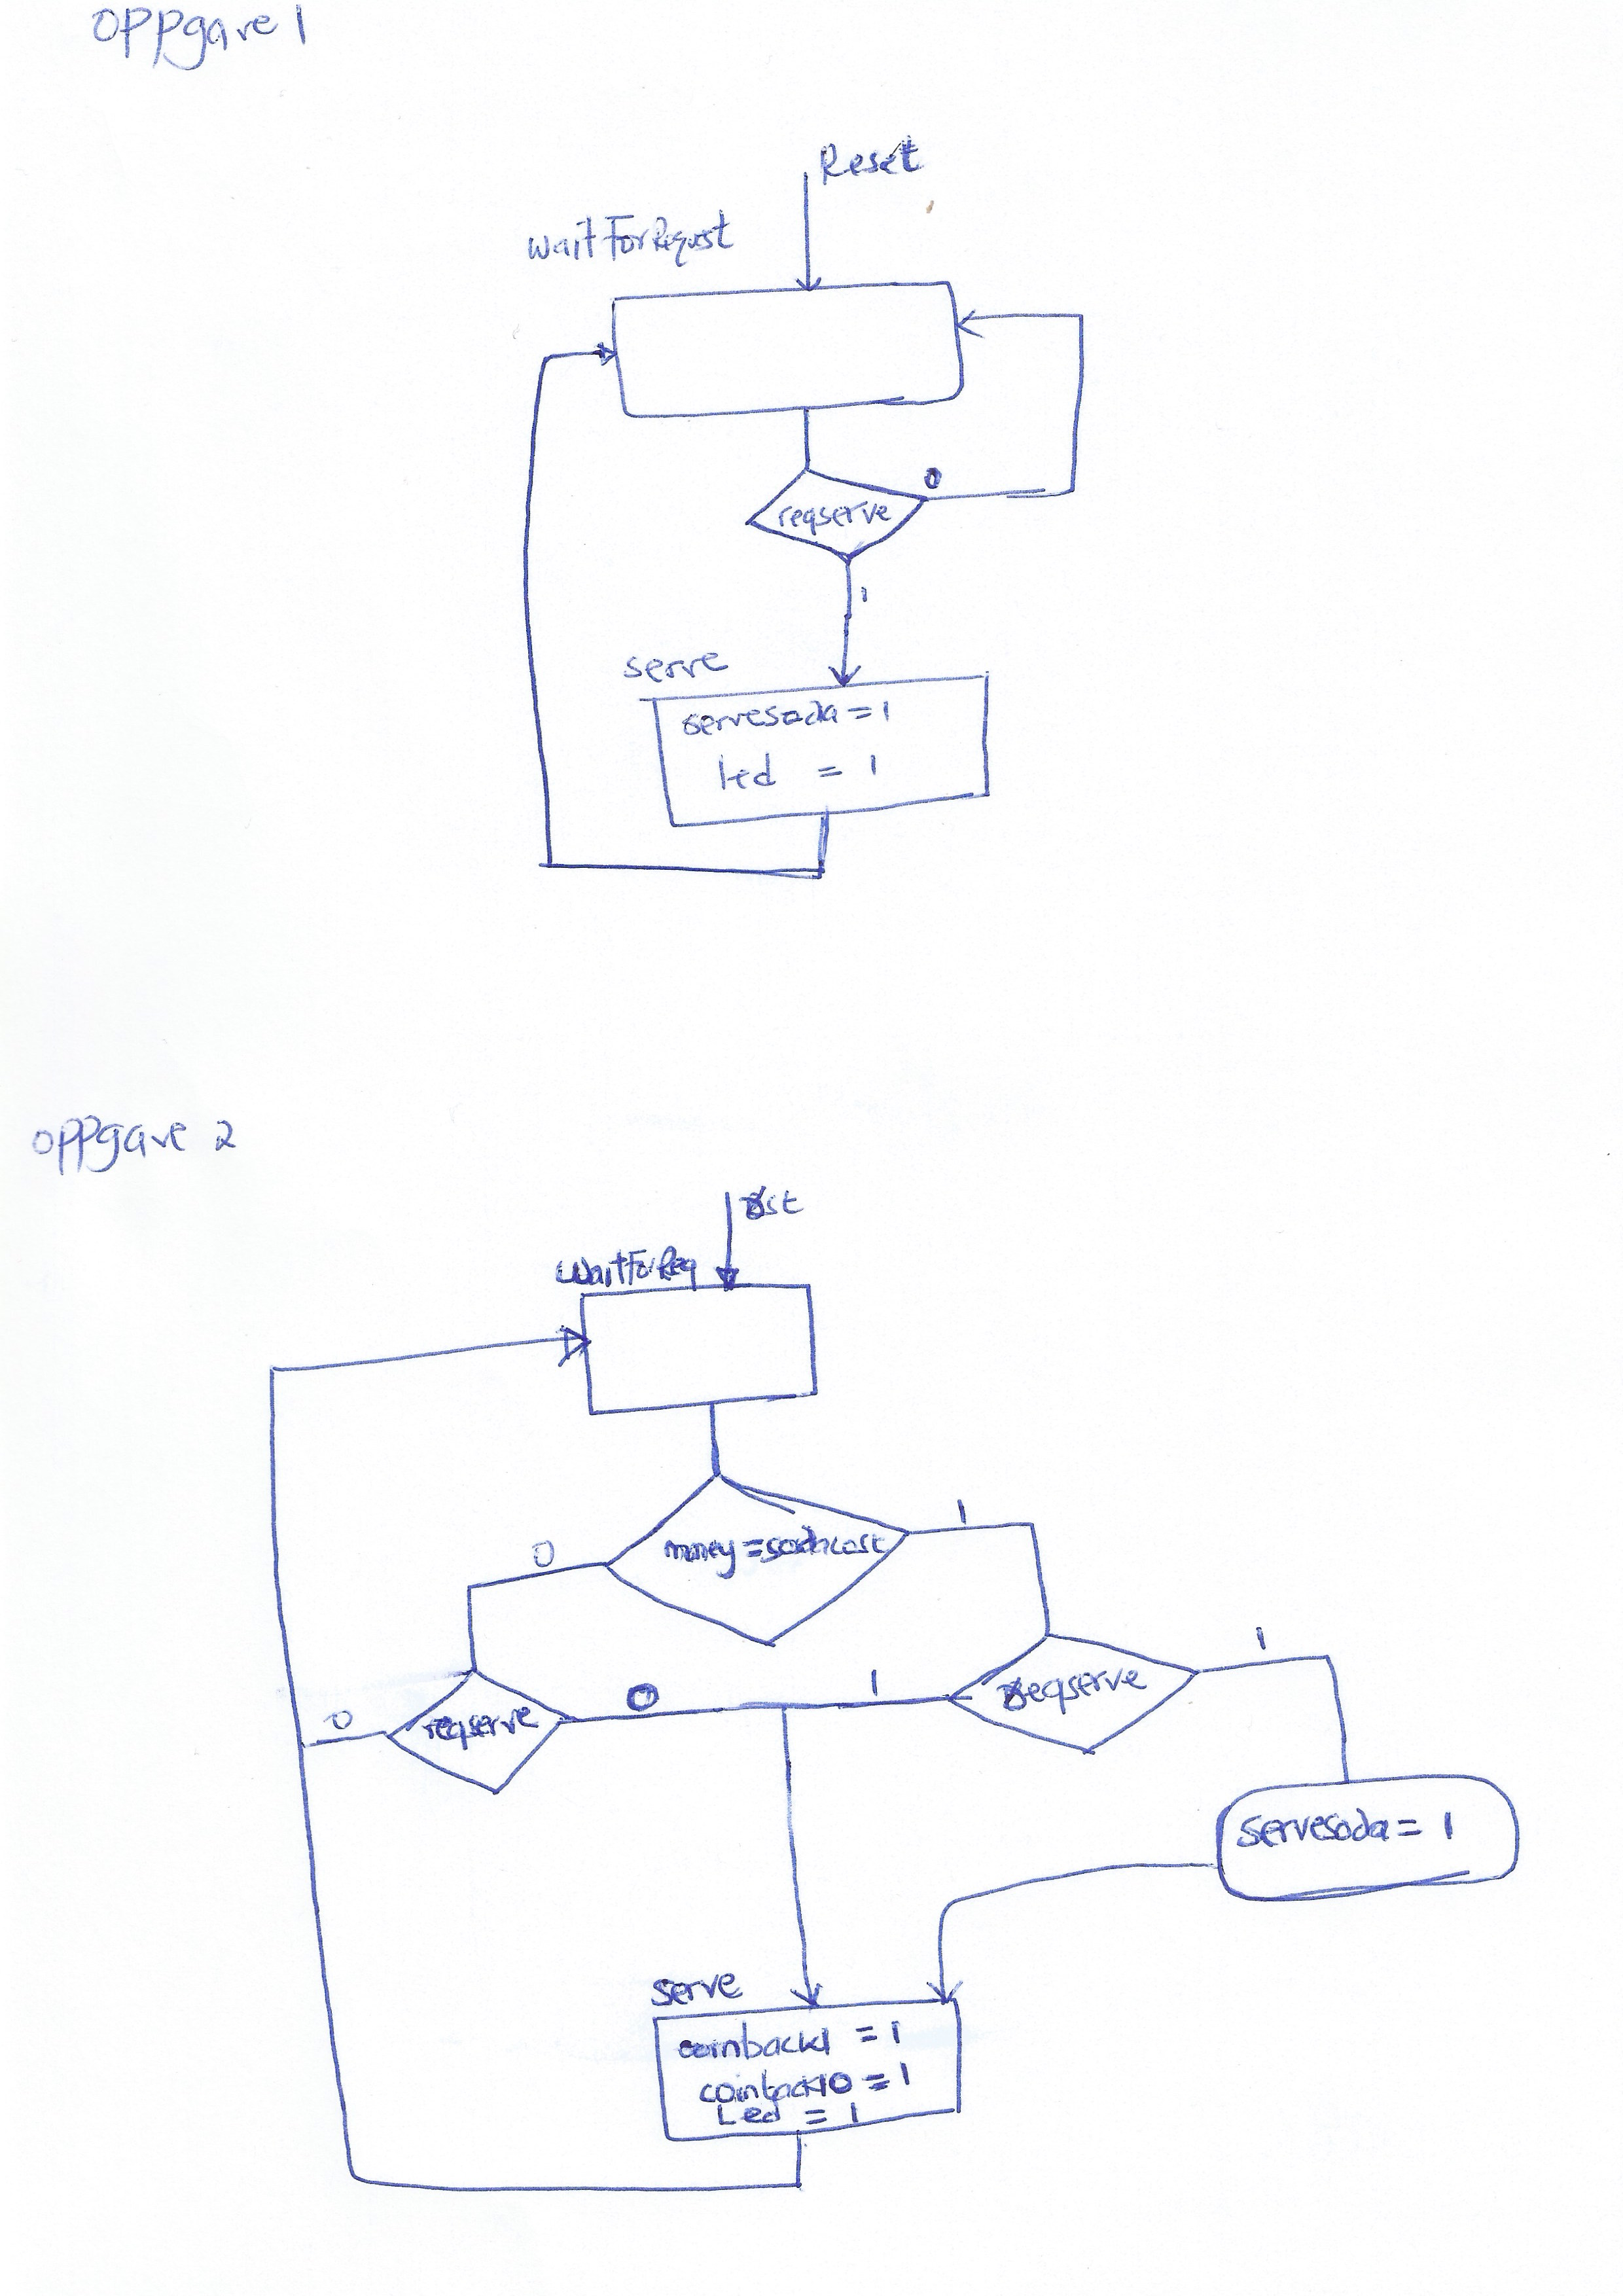 oppgave 1
Reset
waitForRequst
0
reqserve
1
serve
servesoda = 1
led = 1
oppgave 2
rst
WaitForReq
money = sodacost
0
1
reqserve
0
0
1
reqserve
1
servesoda = 1
serve
coinback1 = 1
coinback10 = 1
Led = 1